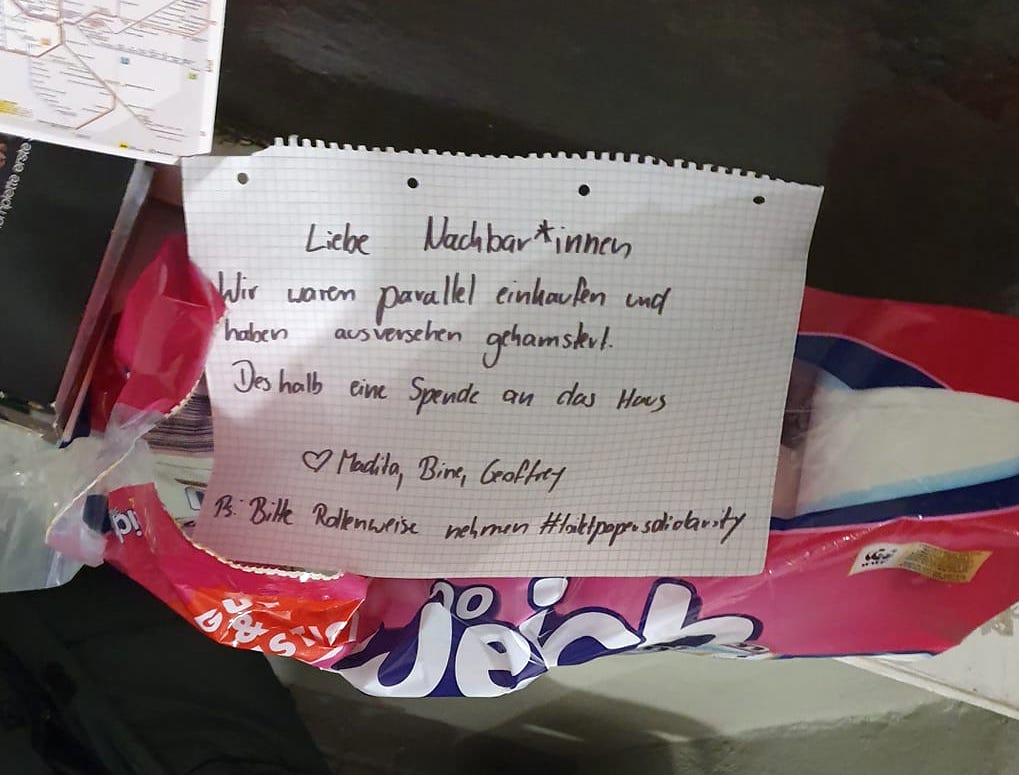 komplette erste
Liebe Nachbar*innen
Wir waren parallel einkaufen und
haben ausversehen gehamstert.
Deshalb eine Spende an das Haus
♡ Madita, Bine, Geoffrey
Ps: Bitte Rollenweise nehmen #toiletpapersolidarity
&
weich